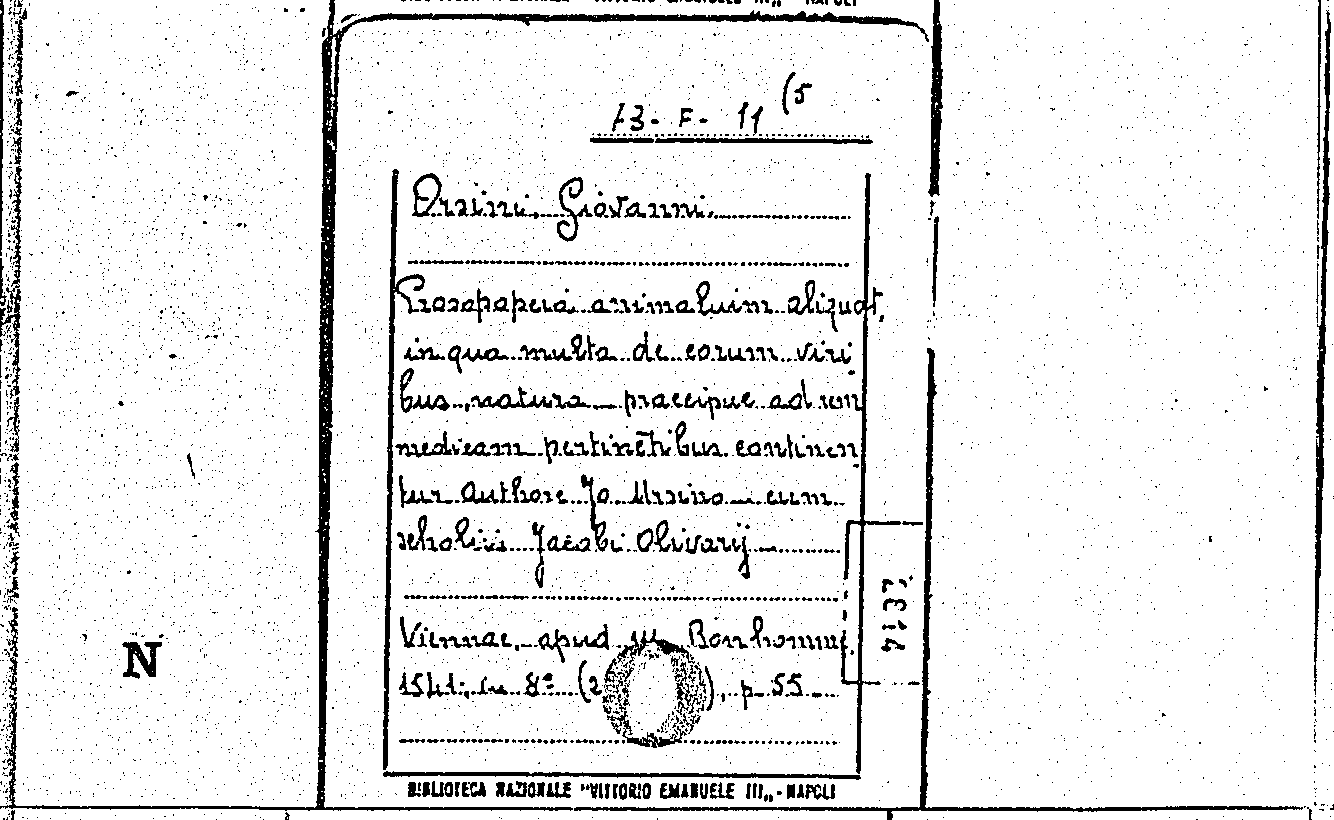 13-F-11 (5
Orsini, Giovanni.
Prosopopeia animalium aliquot,
in qua multa de eorum viri
bus, natura praecipue ad rem
medicam pertinētibus continen
tur Authore Jo Ursino cum
scholiis Jacobi Olivarij
Viennae, apud M Bonhomme,
1541; in 8º (2 ), p 55
BIBLIOTECA NAZIONALE "VITTORIO EMANUELE III„ - NAPOLI
N